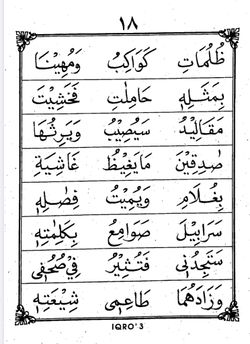 ١٨
ظُلُمَاتِ كَوَاكِبُ وَمُهِيْنًا
بِمِثْلِهٖ حَامِلٰتِ فَخَشِيْتَ
مَقَالِيْدُ سَيُصِيْبُ وَيَرِثُهَا
صٰدِقِيْنَ مَايَغِيْظُ غَاشِيَةٍ
بِغُلَامٍ وَيُمِيْتُ فِصٰلِهٖ
سَرَابِيْلَ صَوَامِعُ بِكَلِمٰتِهٖ
سَتَجِدُنِى فَتُثِيْرُ فِيْ صُحُفِى
وَزَادَهُمَا طَاعِمِى شِيْعَتِهٖ
IQRO' 3